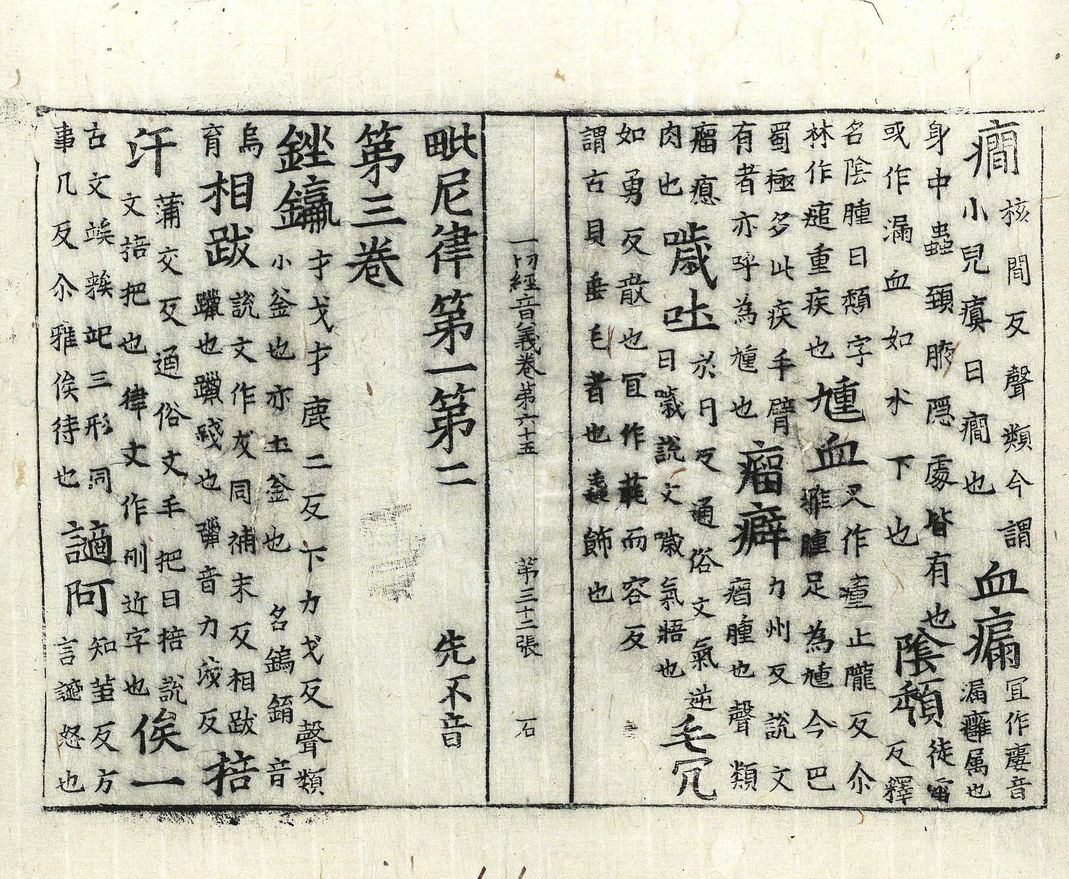 癎核間反聲類今謂小兒瘨曰癎也血㿃冝作瘻音漏癰属也
身中蟲頸腋隠處皆有也或作漏血如水下也陰頹徒雷反釋
名陰腫曰頹字林作㾽重疾也尰血又作㾽止隴反尒雅腫足為尰今巴
蜀極多此疾手臂有者亦呼為尰也瘤癖力州反説文瘤腫也聲類
瘤瘜肉也噦吐於月反通俗文氣逆曰噦説文噦氣牾也毛冗
如勇反㪚也冝作而容反謂古貝垂毛者也飾也
一切經音義卷第六十五 第三十二張 石
毗尼律第一第二 先不音
第三卷
銼鑹才戈才鹿二反下力戈反聲類小釜也亦土釜也名鎢錥音
烏育相跋説文作犮同補末反相跋躐也躐踐也躐音力涉反掊
汗蒲交反通俗文手把曰掊説文掊把也律文作刨近字也俟一
古文竢三形同事几反尒雅俟待也謫阿知革反方言謫怒也